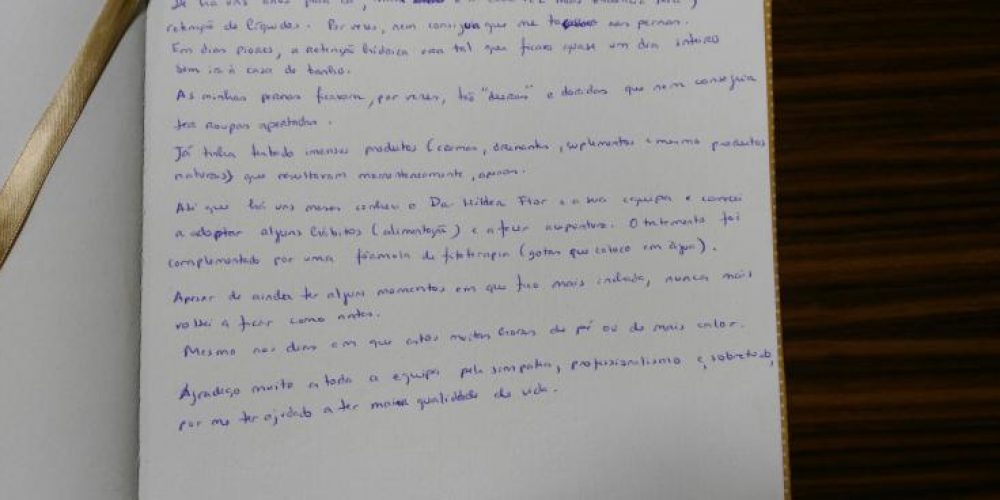 De há uns anos para cá,
retenção de líquidos. Por vezes, nem consigua que me tocassem nas pernas.
Em dias piores, a retenção hídrica era tal que ficava quase um dia inteiro
sem ir à casa de banho.
As minhas pernas ficavam, por vezes, tão "duras" e doridas que nem conseguia
ter roupas apertadas.
Já tinha tentado imensos produtos (cremes, drenantes, suplementos e mesmo produtos
naturais) que resultaram momentaneamente, apenas.
Até que há uns meses conheci a Dra Hilda Flor e a sua equipa e comecei
a adoptar alguns hábitos (alimentação) e a fazer acupuntura. O tratamento foi
complementado por uma fórmula de fitoterapia (gotas que coloco em água).
Apesar de ainda ter alguns momentos em que fico mais inchada, nunca mais
voltei a ficar como antes.
Mesmo nos dias em que estou muitas horas de pé ou de mais calor.
Agradeço muito a toda a equipa pela simpatia, profissionalismo e, sobretudo,
por me ter ajudado a ter maior qualidade de vida.